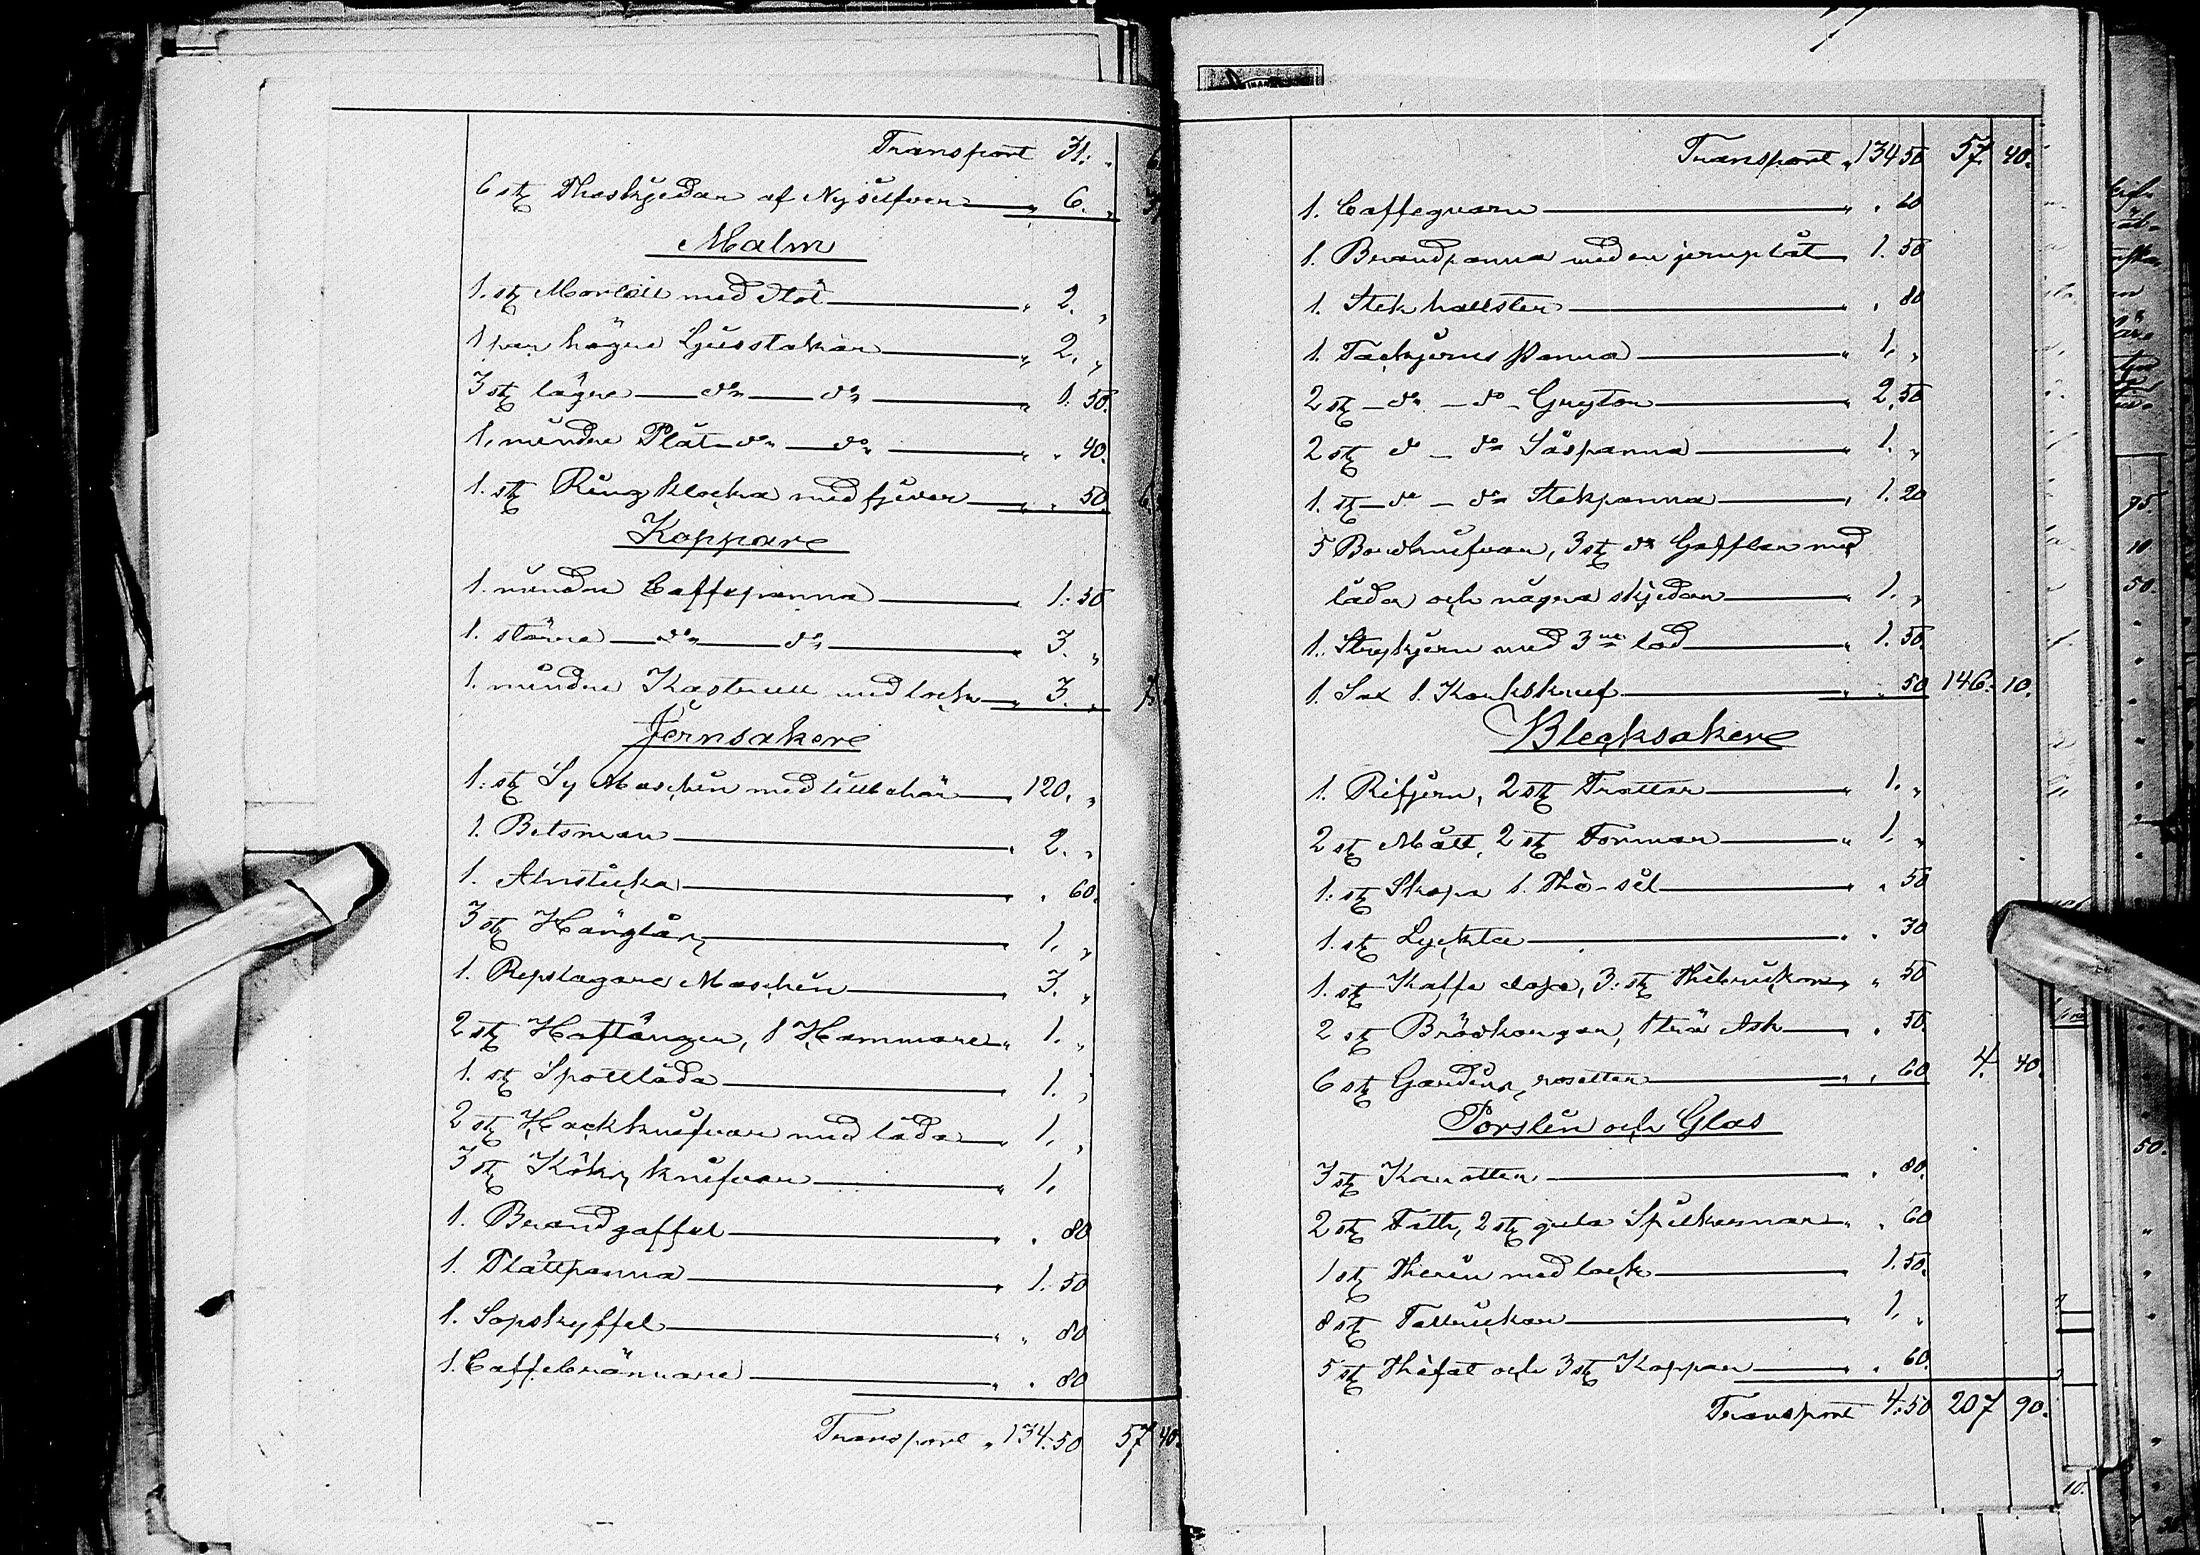 Transport 31. "
6 st Theskjedar af Nysilfver " 6. "
Malm
1. st Mortell med Stöt " 2. "
1 par högre Ljusstakar " 2. "
3 st lägre do do " 1. 50.
1. mindre Plåt do do " " 40.
1. st Ringklocka med fjäder " " 50.
Koppar
1. mindre Caffepanna " 1. 50
1. större do do " 3. "
1. mindre Kastrull med lock " 3. "
Jernsaker
1. st Sy Maschin med tillbehör " 120. "
1. Betsman " 2. "
1. Alnsticka " 60.
3 st Hänglås 1. "
1. Repslagare Maschin " 3. "
2 st Hoftånger, 1 Hammare " 1. "
1. st Spottlåda " 1. "
2 st Hackknifvar med låda " 1. "
3 st Köksknifvar " 1.
1. Brandgaffel " " 80
1. Plättpanna " 1. 50
1. Sopskyffel " " 80
1. Caffebrännare " " 80
Transport " 134.50 57 40.
Transport " 134 50 57. 40.
1. Caffeqvarn " " 20
1. Brandpanna med en jernplåt " 1. 50
1. Stek halster " " 80
1. Tackjerns Panna " 1. "
2 st do do Grytor " 2. 50
2 st do do Såspanna " 1. "
1. st do do Stekpanna " 1. 20
5 Bordknifvar, 3 st do Gafflar med
låda och några skjedar " 1. "
1. Strykjern med 3ne lod " 1. 50.
1. Sax 1. Korkskruf " " 50 146. 10.
Blecksaker
1. Rifjern, 2 st Trattar " 1. "
2 st Mått, 2 st Formar " 1. "
1. st Skopa 1. The-sil " " 50
1. st Lyckta " " 30
1. st Kaffe dosa, 3. st Thebrickor " 50
2 st Brödkorgar, 1 trä Ask " 50.
6 st Gardins rosetter " " 60 4. 40.
Porslin och Glas
3 st Karotter " 80.
2 st Fath, 2 st gula Spilkummar " " 60
1 st Therin med lock " 1. 50.
8 st Tallrickar " 1. "
5 st Thefat och 3 st Koppar " " 60.
Transport 4.50 207 90.